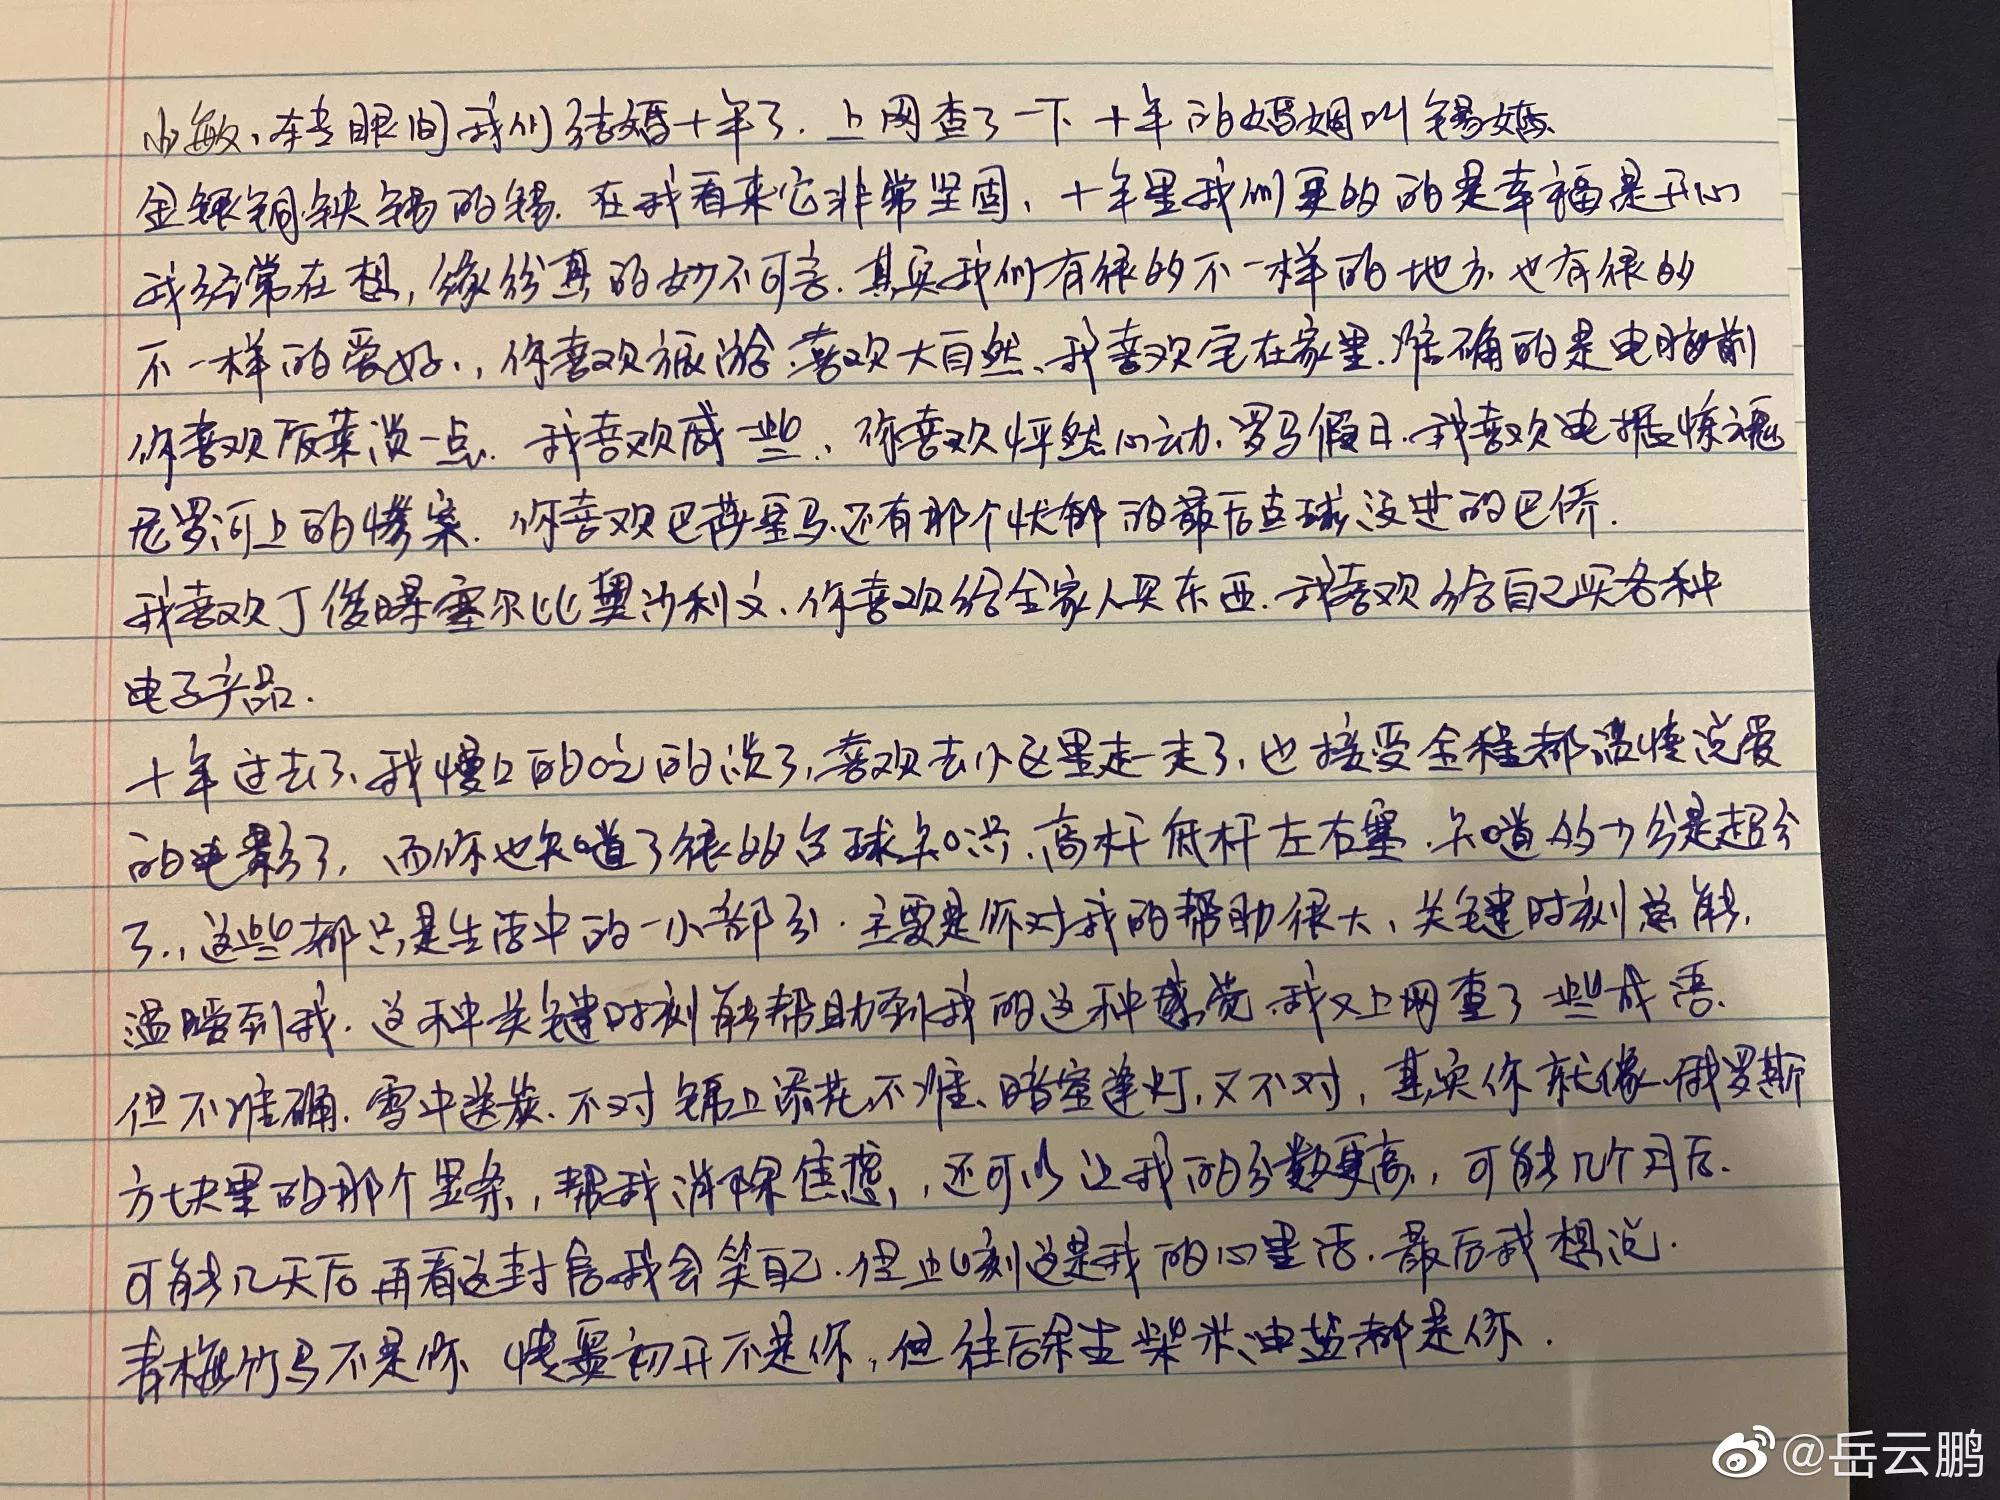 小敏、转眼间我们结婚十年了.上网查了一下十年的婚姻叫锡婚.
金银铜铁锡的锡.在我看来它非常坚固,十年里我们更多的是幸福是开心
我经常在想,缘份真的妙不可言.其实我们有很多不一样的地方.也有很多
不一样的爱好.,你喜欢旅游.喜欢大自然、我喜欢宅在家里.准确的是电脑前
你喜欢饭菜淡一点.我喜欢咸一些.,你喜欢怦然心动.罗马假日.我喜欢电锯惊魂
尼罗河上的惨案.你喜欢巴薩罗马.还有那个忧郁的最后点球没进的巴乔.
我喜欢丁俊晖塞尔比奥沙利文.你喜欢给全家人买东西.我喜欢给自己买各种
电子产品.
十年过去了.我慢慢的吃的淡了,喜欢去小区里走一走了,也接受全程都温情说爱
的电影了,而你也知道了很多台球知识.高杆低杆左右塞.知道多少分是超分
了.,这些都只是生活中的一小部分.主要是你对我的帮助很大、关键时刻总能.
温暖到我.这种关键时刻能帮助到我的这种感觉.我又上网查了一些成语.
但不准确.雪中送炭.不对锦上添花.不准、暗室逢灯,又不对,其实你就像.俄罗斯
方块里的那个竖条,帮我消除焦虑,,还可以让我的分数更高.,可能几个月后.
可能几天后再看这封信我会笑自己.但此刻这是我的心里话.最后我想说.
青梅竹马不是你.情窦初开不是你,但往后余生柴米油盐都是你.
@岳云鹏